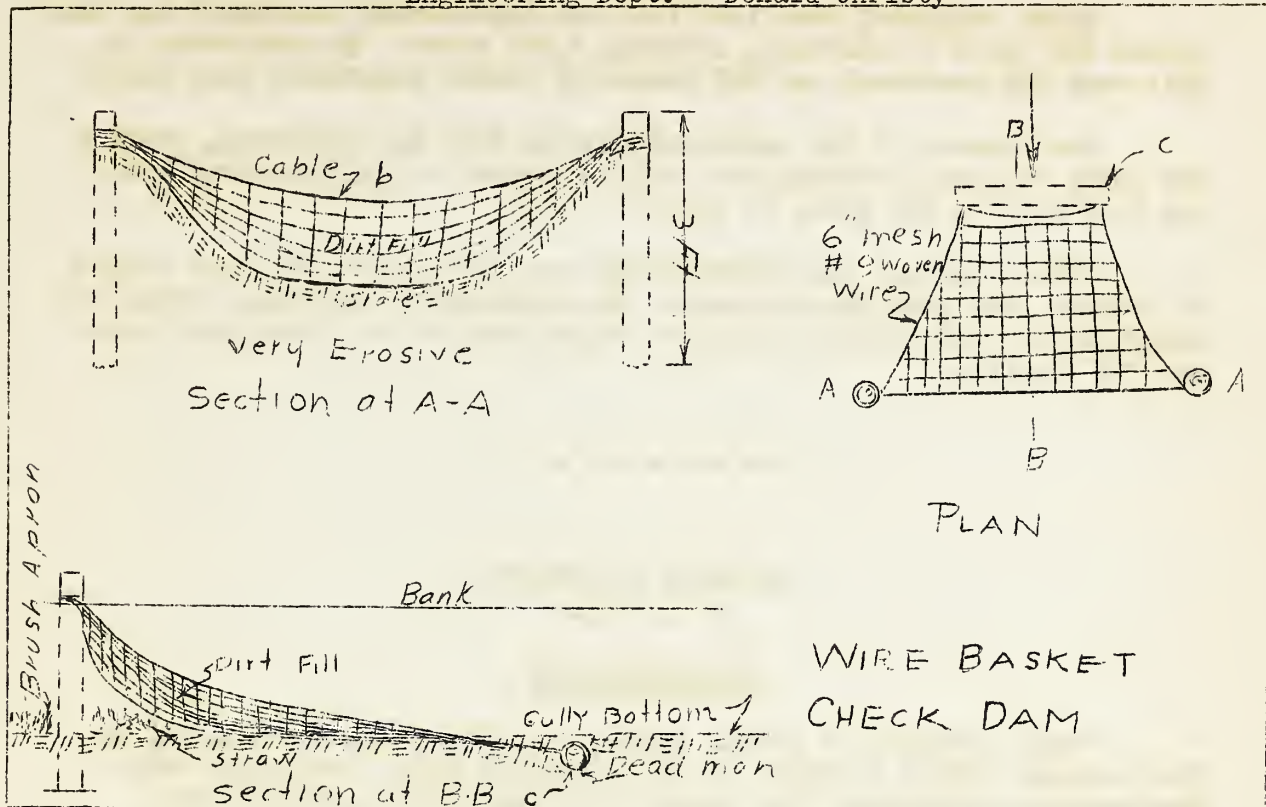 Engineering Dept. - Donald Christy
Cable b
Dirt Fill
very Erosive
Section at A-A
B
C
6" mesh
# 9 woven
Wire
A
A
B
PLAN
Brush Apron
Bank
Dirt Fill
Gully Bottom
Straw
Dead man
section at B-B
c
WIRE BASKET
CHECK DAM